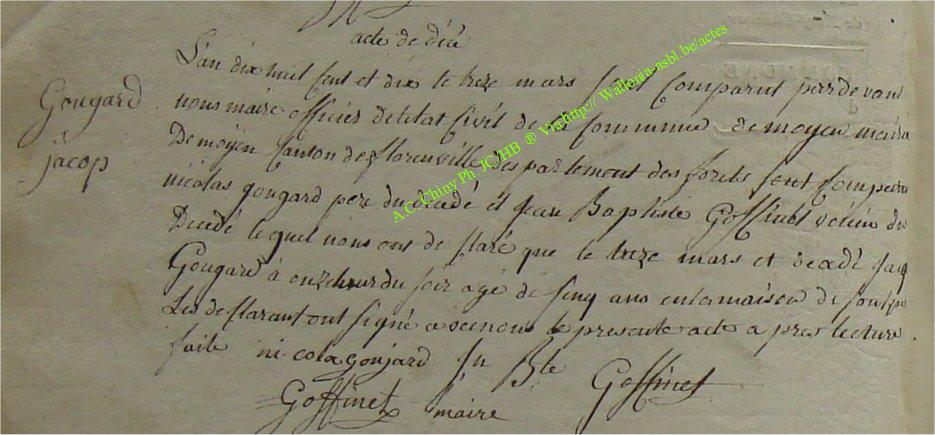 acte de dié
L'an dix huit sent et dix le treze mars sont Comparut pardevant
nous maire officier deletat Civil de la Commune de moyen mairie
Demoyen Canton deflorenville departement des forets sont Comparu
nicolas gougard pere du décédé et Jean Baptiste Goffinet voisin du
Décédé lequel nous ont de Claré que le treze mars et décédé Jacq
Gougard à onze heur du soir agé de sinq ans enlamaison de son
Les de Clarant ont signé avec nous le presente acte a pres lecture
faite nicola goujard Jn Bte Goffinet
Goffinet maire
Gougard
jacop
A.C. Chiny Ph. JC/HB ® Via http:// Wallonia-asbl.be/actes